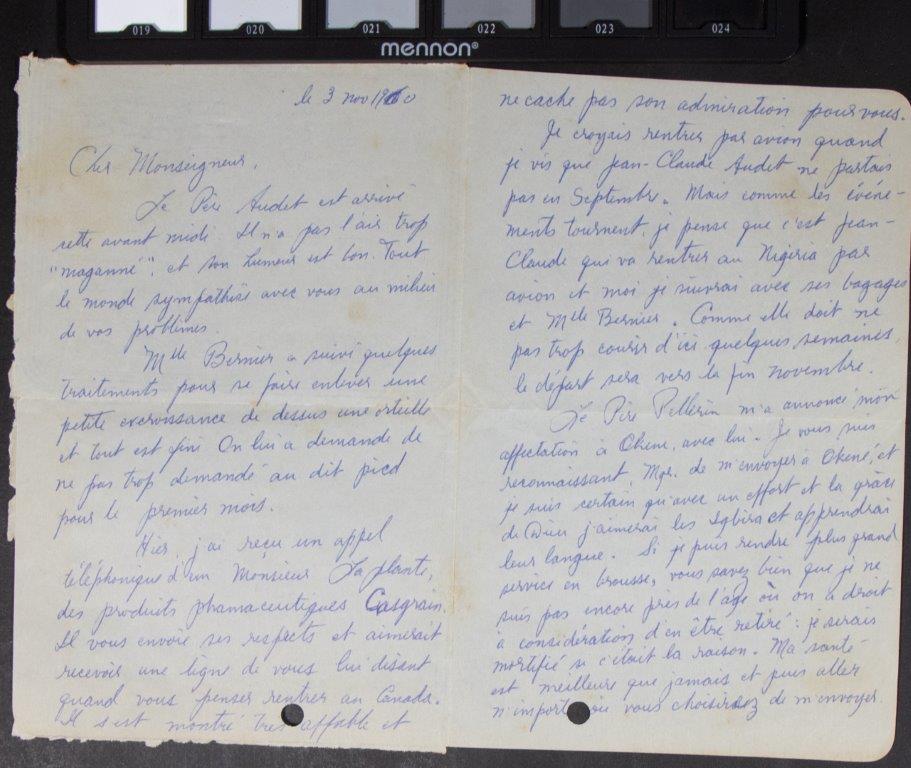 019 020 021 022 023 024
mennon®
le 3 nov 1960
Cher Monseigneur,
Le Père Audet est arrivé
cette avant midi. Il n'a pas l'air trop
"maganné", et son humeur est bon. Tout
le monde sympathise avec vous au milieu
de vos problèmes.
Mlle Bernier a suivi quelques
traitements pour se faire enlever une
petite excroissance de dessus une orteille
et tout est fini. On lui a demande de
ne pas trop demandé au dit pied
pour le premier mois.
Hier, j'ai recu un appel
téléphonique d'un Monsieur Laplante,
des produits phamaceutiques Casgrain.
Il vous envoie ses respects et aimerait
recevoir une ligne de vous lui disant
quand vous penser rentrer au Canada.
Il s'est montré très affable et
ne cache pas son admiration pour vous.
Je croyais rentrer par avion quand
je vis que Jean-Claude Audet ne partais
pas en Septembre. Mais comme les événe-
ments tournent, je pense que c'est Jean-
Claude qui va rentrer au Nigéria par
avion et moi je suivrai avec ses bagages
et Mlle Bernier. Comme elle doit ne
pas trop courir d'ici quelques semaines,
le départ sera vers la fin novembre.
Le Père Pellerin m'a annoncé mon
affectation à Okene, avec lui. Je vous suis
reconnaissant, Mgr. de m'envoyer à Okené, et
je suis certain qu'avec un effort et la grâce
de Dieu j'aimerai les Igbira et apprendrai
leur langue. Si je puis rendre plus grand
service en brousse, vous savez bien que je ne
suis pas encore près de l'âge où on a droit
à considérations d'en être retiré: je serais
mortifié si c'était la raison. Ma santé
est meilleure que jamais et puis aller
n'importe où vous choisirez de m'envoyer.